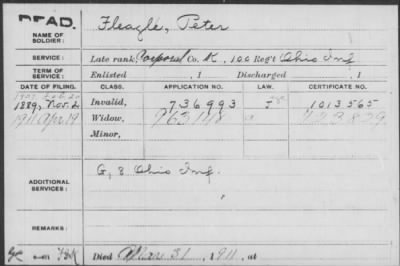 DEAD.
NAME OF SOLDIER: Fleagle, Peter
SERVICE: Late rank, Corporal Co. K, 100 Reg't Ohio Inf
TERM OF SERVICE: Enlisted , 1 Discharged , 1
DATE OF FILING. CLASS. APPLICATION NO. LAW. CERTIFICATE NO.
1889, Nov. 2 Invalid, 736993 J 1013565
1911 Apr 19 Widow, 963148 a 723829
Minor,
ADDITIONAL SERVICES: G, 8 Ohio Inf.
REMARKS:
Died Mar 31, 1911, at